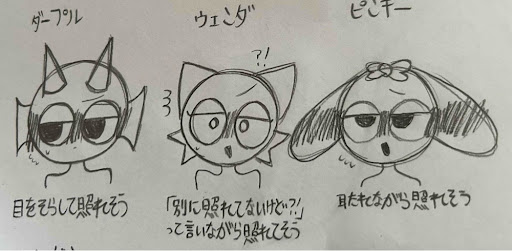 ダープル
ウェンダ
ピンキー
?!
目をそらして照れてそう
「別に照れてないけど?!」
って言いながら照れてそう
耳たれてながら照れてそう